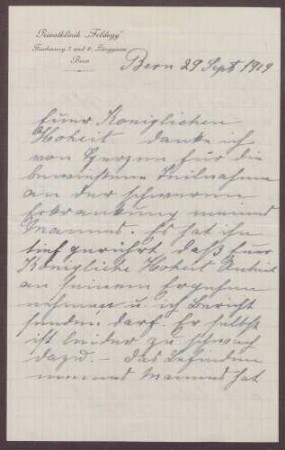 Privatklinik „Feldegg"
Bern
Bern 29 Sept 1919
Euer Königlichen
Hoheit danke ich
von Herzen für die
bewiesene Teilnahme
an der schweren
Erkrankung meines
Mannes. Es hat ihn
tief gerührt daß Euer
Königliche Hoheit Anteil
an seinem Ergehen
nehmen u. ich Bericht
senden darf. Er selbst
ist leider zu schwach
dazu. – Das Befinden
meines Mannes hat